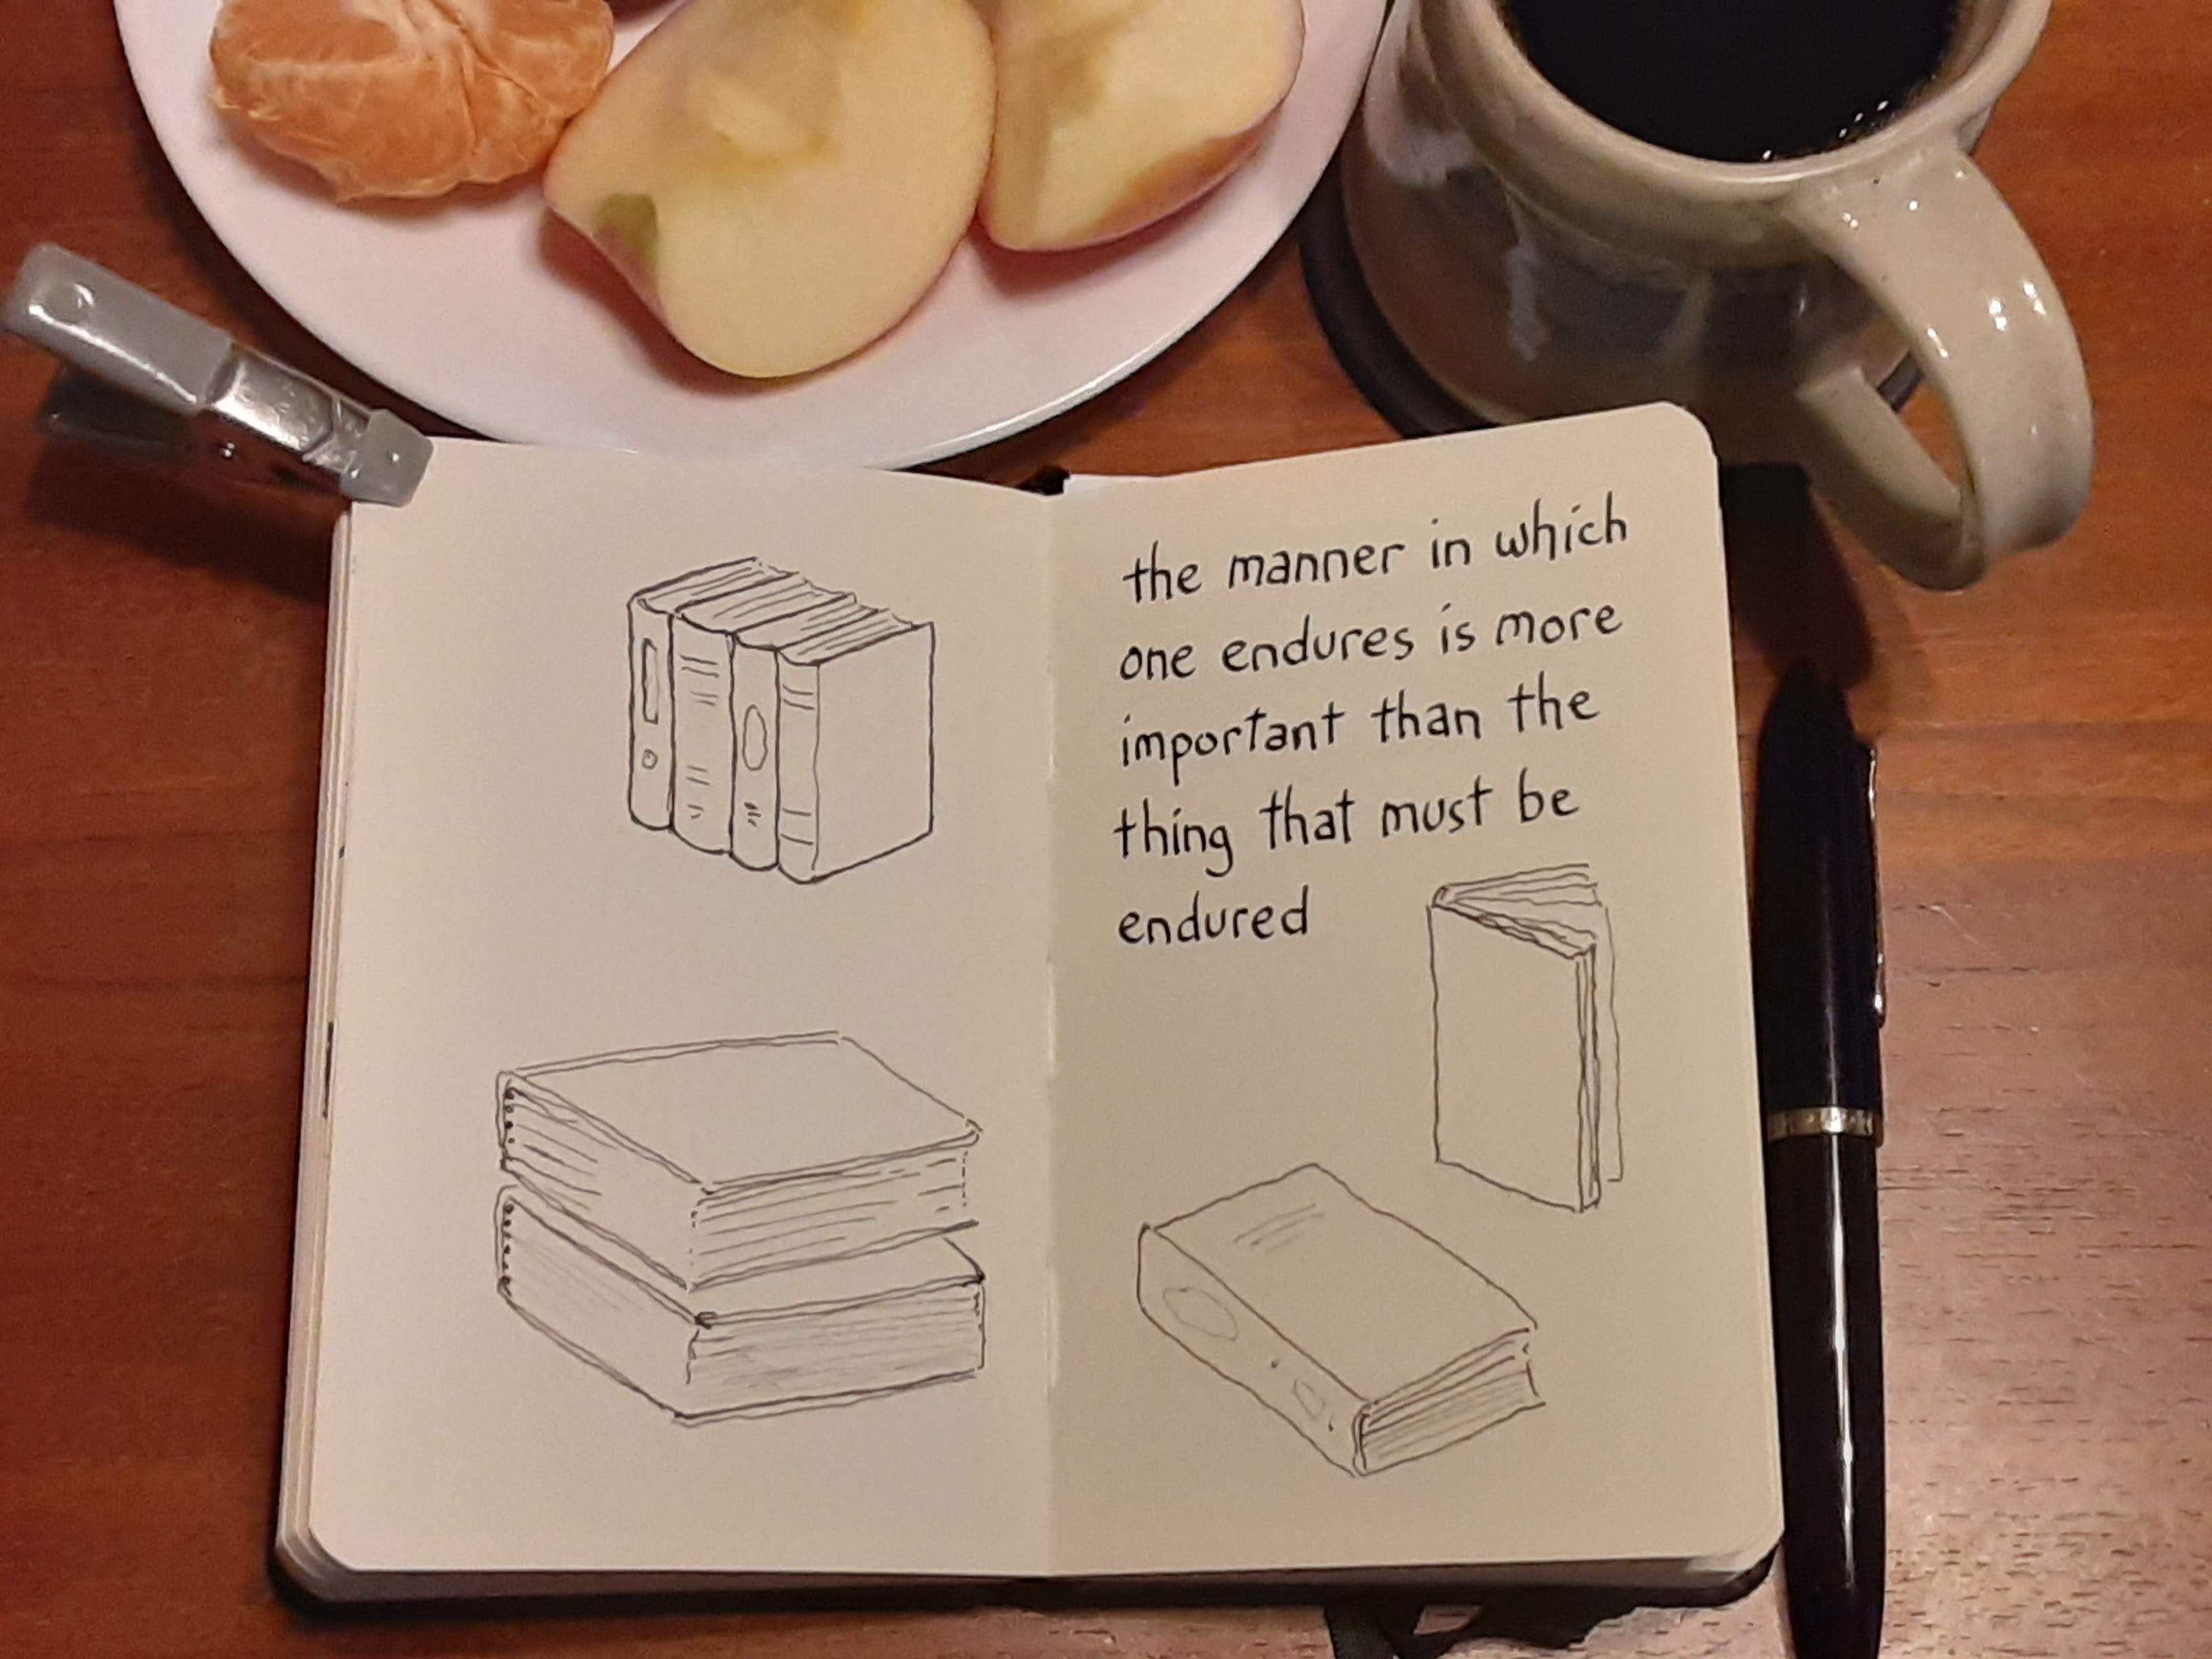 the manner in which
one endures is more
important than the
thing that must be
endured